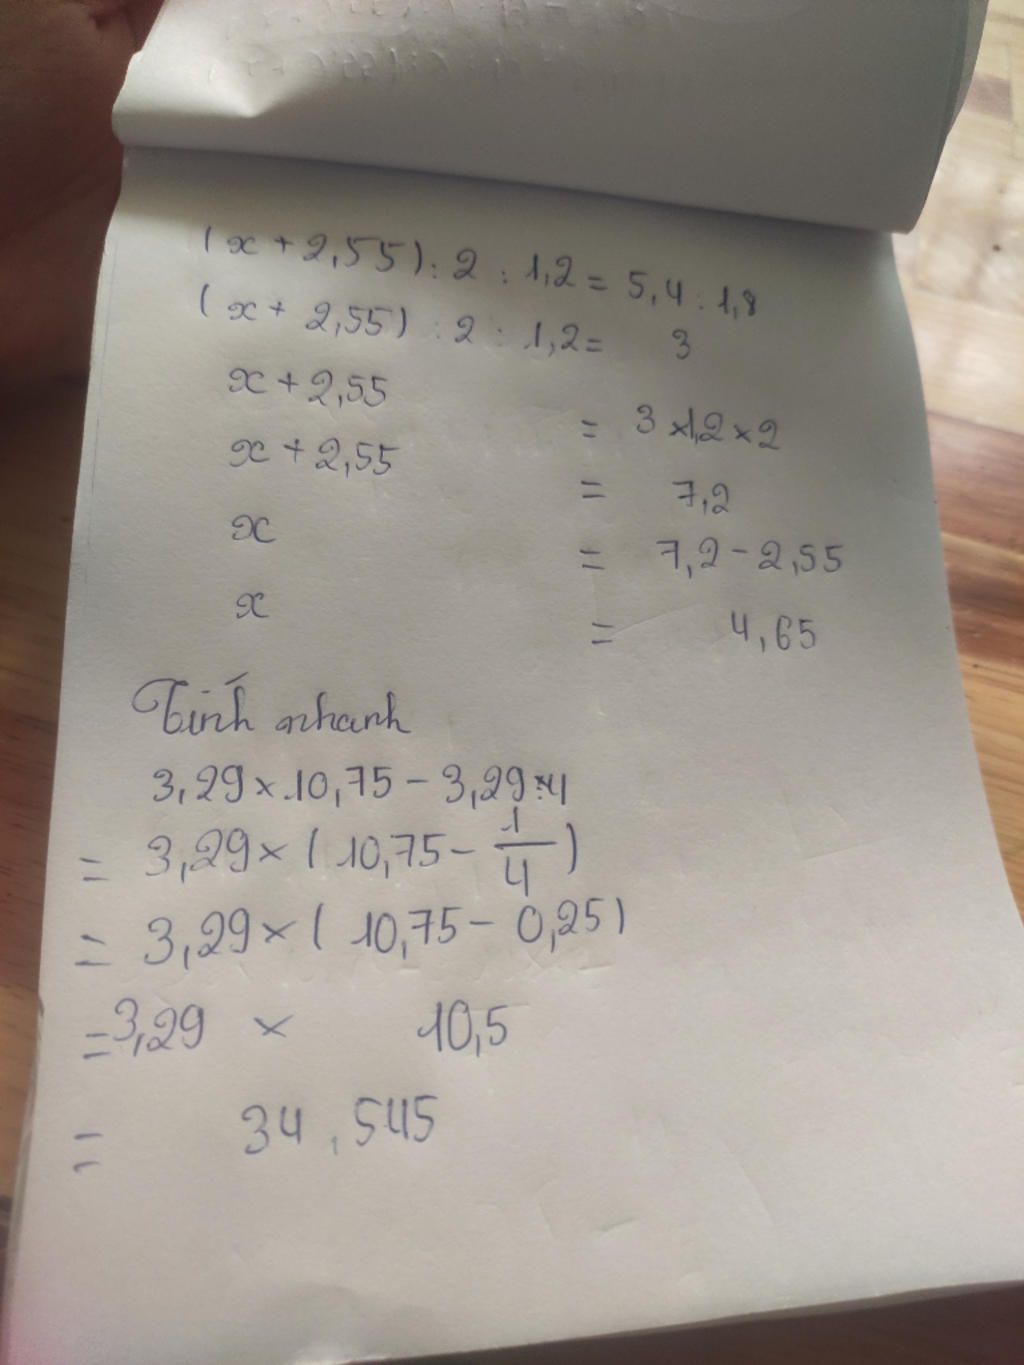 (x + 2,55) : 2 : 1,2 = 5,4 : 1,8
(x + 2,55) : 2 : 1,2 = 3
x + 2,55 = 3 × 1,2 × 2
x + 2,55 = 7,2
x = 7,2 - 2,55
x = 4,65
Tính nhanh
3,29 × 10,75 - 3,29 : 4
= 3,29 × ( 10,75 - 1/4 )
= 3,29 × ( 10,75 - 0,25 )
= 3,29 × 10,5
= 34,545